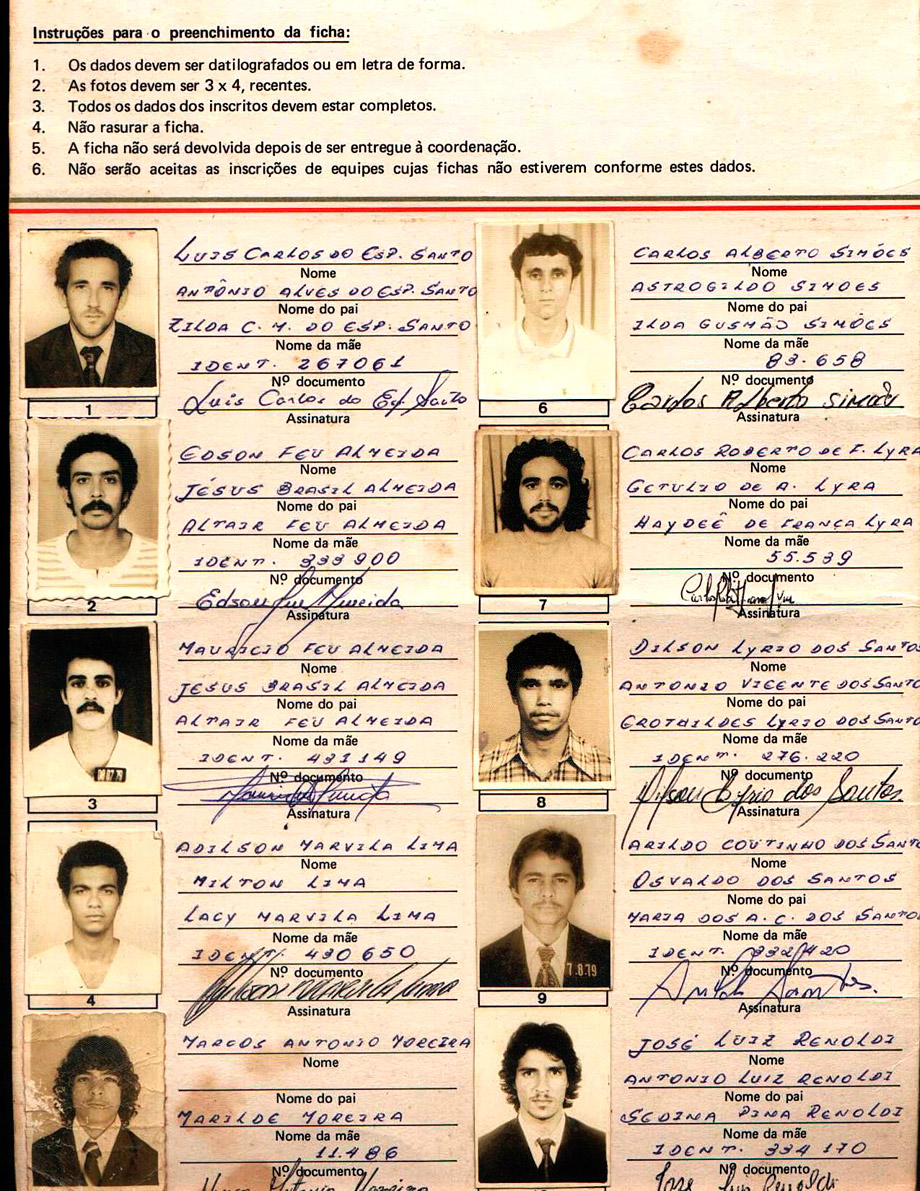 Instruções para o preenchimento da ficha:
1. Os dados devem ser datilografados ou em letra de forma.
2. As fotos devem ser 3 x 4, recentes.
3. Todos os dados dos inscritos devem estar completos.
4. Não rasurar a ficha.
5. A ficha não será devolvida depois de ser entregue à coordenação.
6. Não serão aceitas as inscrições de equipes cujas fichas não estiverem conforme estes dados.
LUIS CARLOS DO ESP. SANTO
Nome
ANTÔNIO ALVES DO ESP. SANTO
Nome do pai
ZILDA C. M. DO ESP. SANTO
Nome da mãe
IDENT. 267061
Nº documento
Luis Carlos do Esp. Santo
Assinatura
1
EDSON FEU ALMEIDA
Nome
JESUS BRASIL ALMEIDA
Nome do pai
ALTAIR FEU ALMEIDA
Nome da mãe
IDENT. 333900
Nº documento
Edson Feu Almeida
Assinatura
2
MAURICIO FEU ALMEIDA
Nome
JESUS BRASIL ALMEIDA
Nome do pai
ALTAIR FEU ALMEIDA
Nome da mãe
IDENT. 431149
Nº documento
Assinatura
3
ADILSON MARVILA LIMA
Nome
MILTON LIMA
LACY MARVILA LIMA
Nome da mãe
IDENT. 430650
Nº documento
Adilson Marvila Lima
Assinatura
4
MARCOS ANTONIO MOREIRA
Nome
Nome do pai
MARILDE MOREIRA
Nome da mãe
11.486
Nº documento
CARLOS ALBERTO SIMÕES
Nome
ASTROGILDO SIMOES
Nome do pai
ILDA GUSMÃO SIMÕES
Nome da mãe
83.658
Nº documento
Carlos Alberto Simões
Assinatura
6
CARLOS ROBERTO DE F. LYRA
Nome
GETULIO DE A. LYRA
Nome do pai
HAYDEÊ DE FRANÇA LYRA
Nome da mãe
55.539
Nº documento
Assinatura
7
DILSON LYRIO DOS SANTOS
Nome
ANTONIO VICENTE DOS SANTO
Nome do pai
CROTHILDES LYRIO DOS SANTO
Nome da mãe
IDENT. 276.220
Nº documento
Dilson Lyrio dos Santos
Assinatura
8
ARILDO COUTINHO DOS SANTO
Nome
OSVALDO DOS SANTOS
Nome do pai
MARIA DOS A. C. DOS SANTO
Nome da mãe
IDENT. 332420
Nº documento
Assinatura
7.8.79
9
JOSÉ LUIZ RENOLDI
Nome
ANTONIO LUIZ RENOLDI
Nome do pai
SEDINA PINA RENOLDI
Nome da mãe
IDENT. 334170
Nº documento